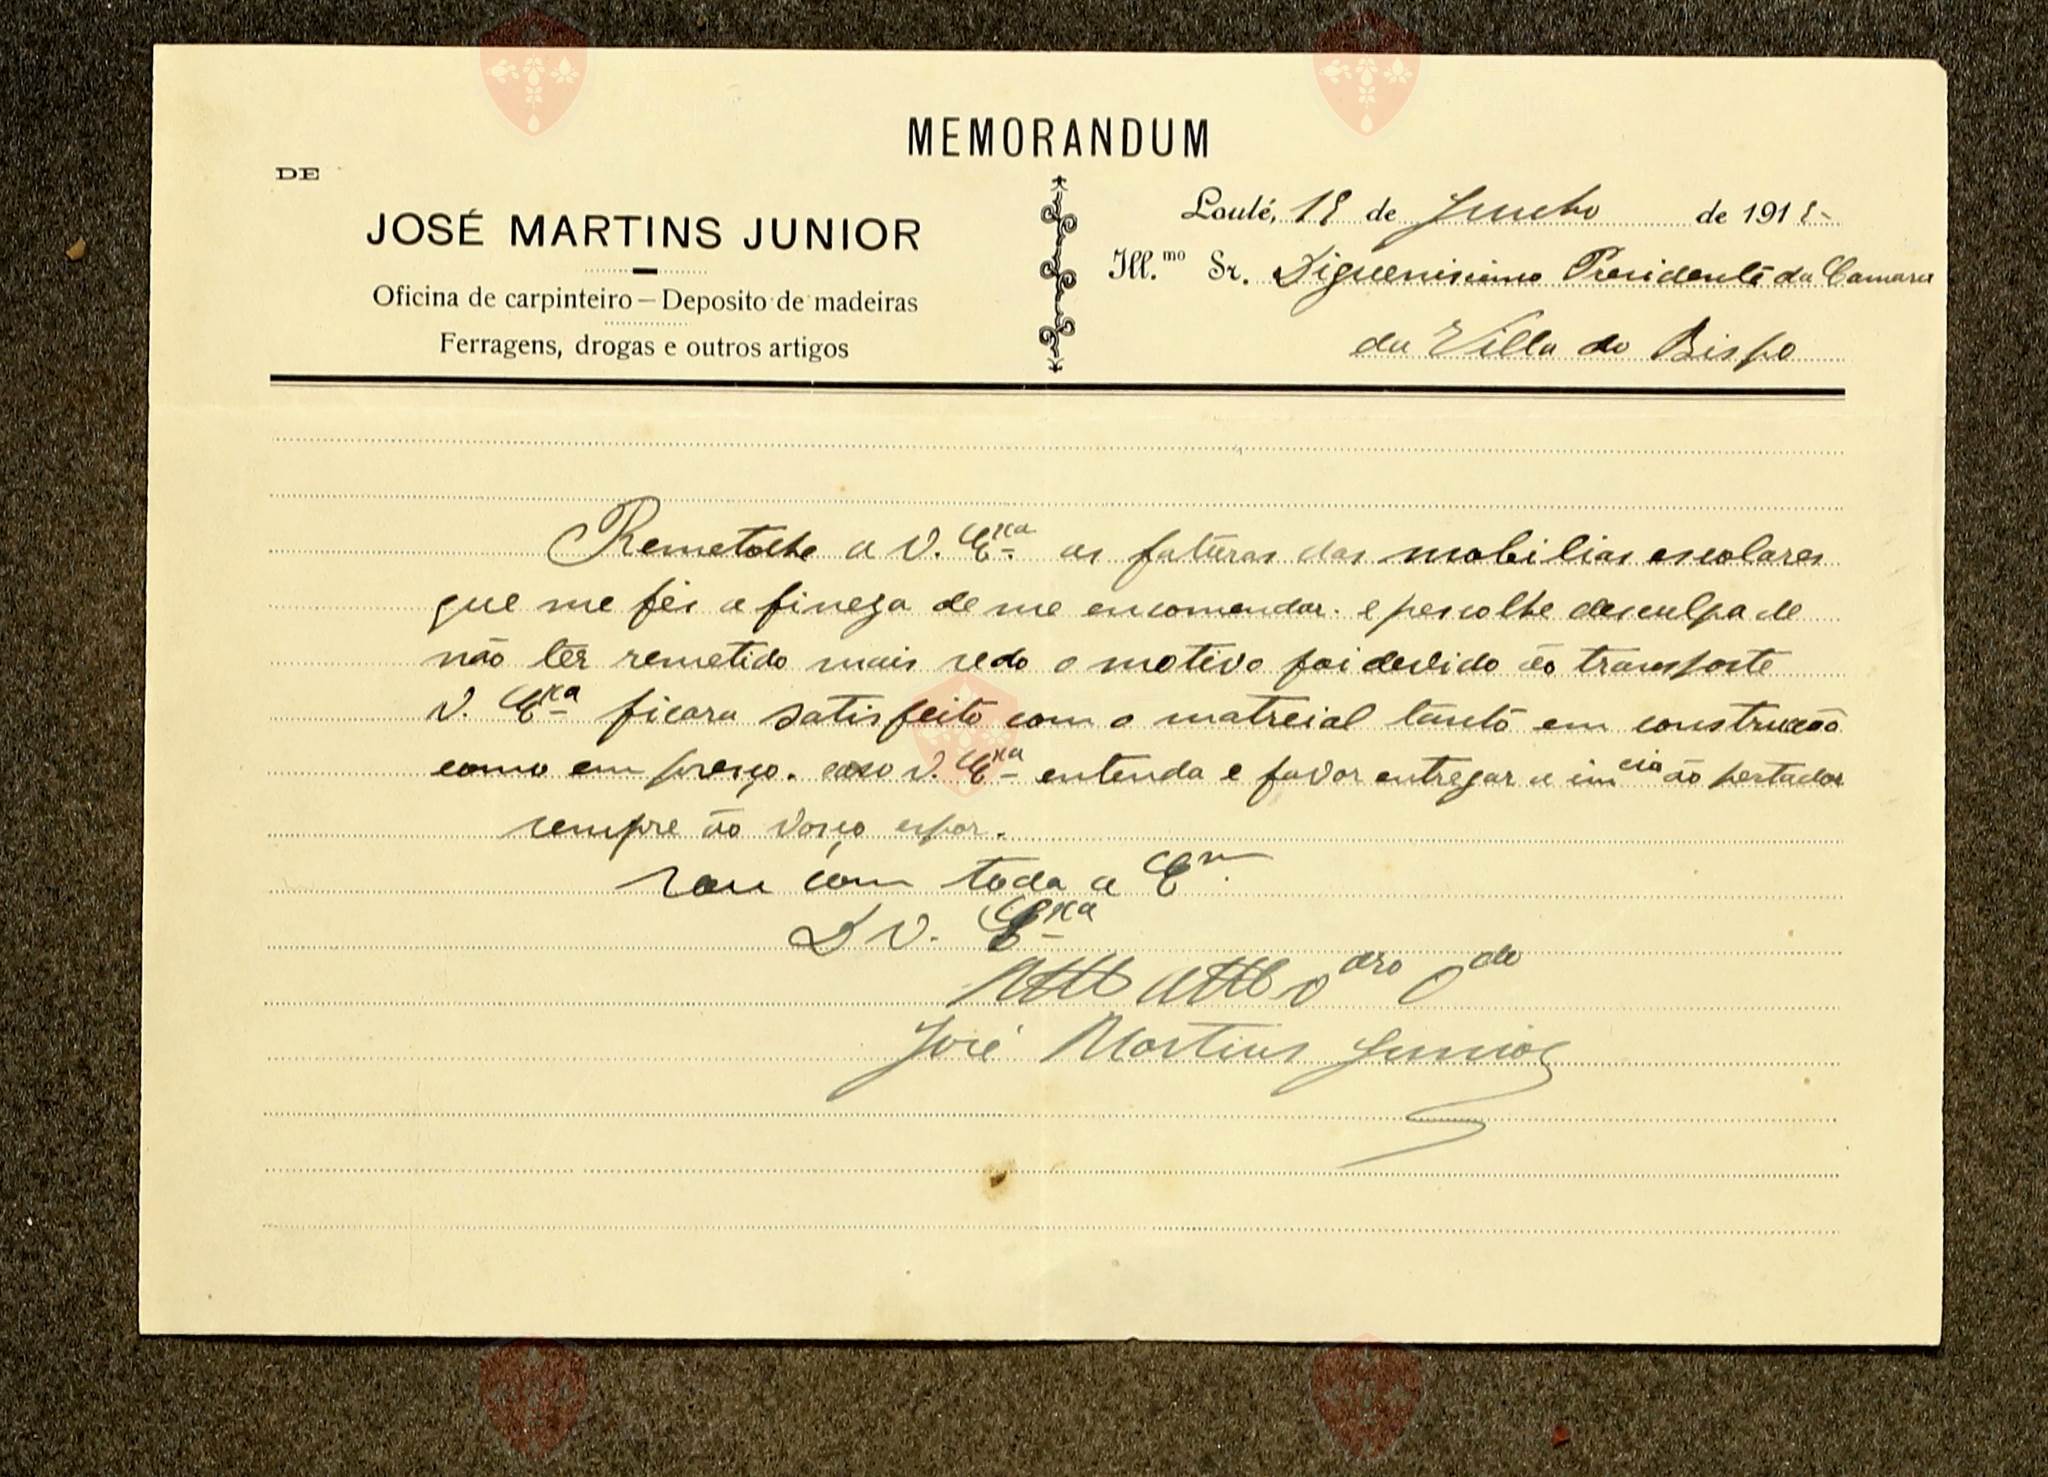 MEMORANDUM
DE
JOSÉ MARTINS JUNIOR
Oficina de carpinteiro — Deposito de madeiras
Ferragens, drogas e outros artigos
Loulé, 18 de Junho de 1918
Ill.mo Sr. Diguenissimo Presidente da Camara
da Villa do Bispo
Remetolhe a V. Exca as faturas das mobilias escolares
que me fes a fineza de me encomendar. e pesolhe desculpa de
não ter remetido mais sedo o motivo foi devido ão transporte
V. Exca ficara satisfeito com o matreial tanto em construcão
como em preço. caso V. Exca entenda e favor entregar a imcia ão portador
sempre ão vosço espor.
sou com toda a
D V. Exca
José Martins Junior